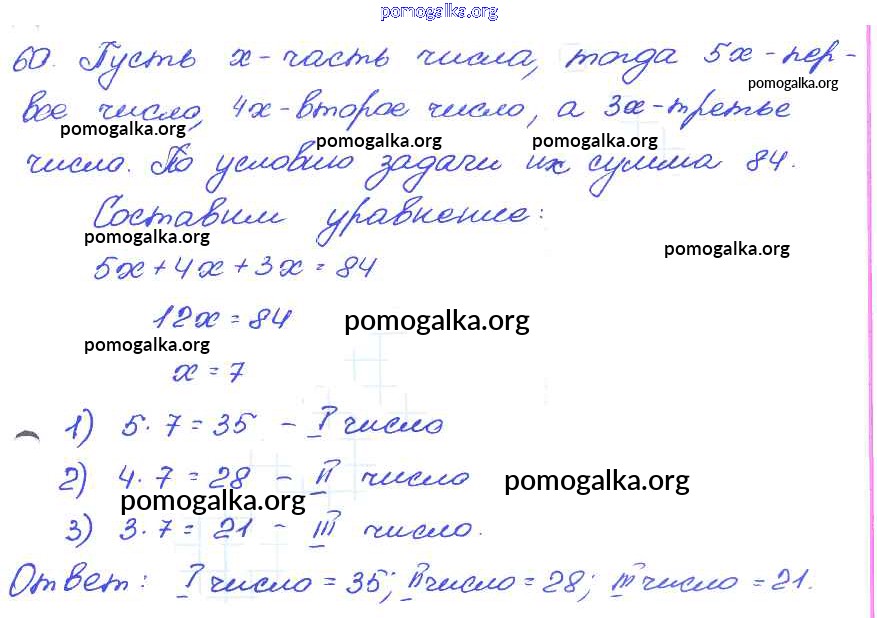 pomogalka.org
60. Пусть x - часть числа, тогда 5x - пер-
pomogalka.org
вое число, 4x - второе число, а 3x - третье
pomogalka.org
pomogalka.org
pomogalka.org
число. По условию задачи их сумма 84.
Составим уравнение:
pomogalka.org
pomogalka.org
5x + 4x + 3x = 84
12x = 84
pomogalka.org
pomogalka.org
x = 7
1) 5 · 7 = 35 - I число
2) 4 · 7 = 28 - II число
pomogalka.org
pomogalka.org
3) 3 · 7 = 21 - III число.
Ответ: I число = 35; II число = 28; III число = 21.